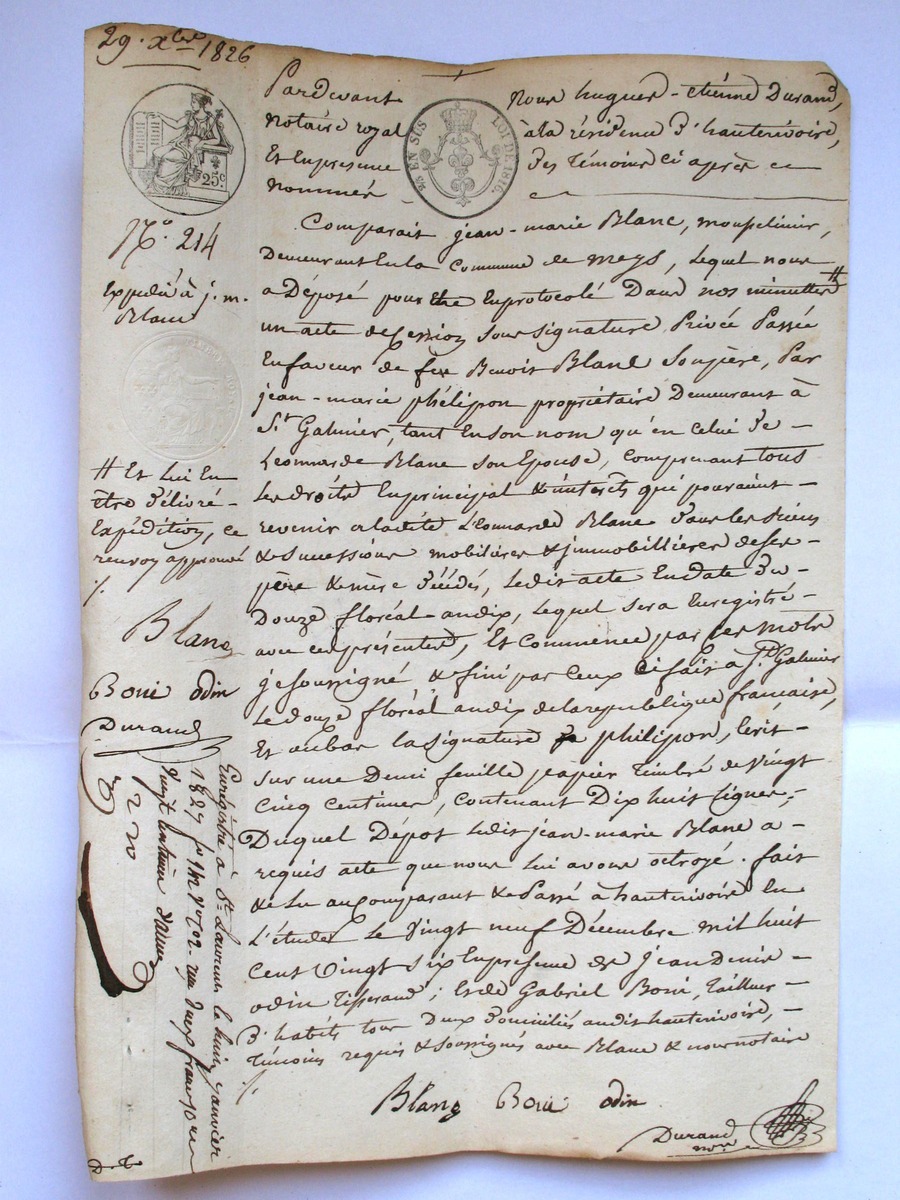 29. xbre 1826
25c
N.° 214
Expédié à j. m.
Blanc
# Et lui En
être délivré
Expédition, ce
renvoy approuvé
Blanc
Boui odin
Durand
EN SUS LOI DE 1816.
Pardevant Nous hugues-étiénne Durand,
notaire royal à la résidence d'hauterivoire,
Et En presence des témoins ci après
nommés
Comparait jean-marie Blanc,
Demeurant En la Commune de meys, lequel nous
a Déposé pour Etre En protocolé Dans nos minuttes #
un acte de Cession Sous Signature Privée Passée
En faveur de feu Benoit Blanc Son père, Par
jean-marie phélipon propriétaire Demeurant à
St Galmier, tant En son nom qu'en Celui de
Leonnarde Blanc son Epouse, Comprenant tous
les droits En principal & interets qui pouraint
revenir a ladite Léonnarde Blanc dans les biens
& Successions mobilières & jmmobillières de ses
père & mère décédés, ledit acte En date du
Douze floréal an dix, lequel sera Enregistré
avec ces présentes, Et Commence par les mots
je soussigné & fini par Ceux ci fait a St Galmier
le douze floréal an dix de la republique française,
Et au bas la signature philipon, Ecrit
sur une Demi feuille papier timbré de vingt
Cinq Centimes, Contenant Dix huit lignes,
Duquel Dépot ledit jean-marie Blanc a
requis acte que nous lui avons octroyé. fait
& lu au Comparant & Passé à hauterivoire En
L'étude Le vingt neuf Décembre mil huit
Cent vingt six En presence de jean Denis
odin tisserand, Et de Gabriel Boui, tailleur
d'habits tous Deux domiciliés audit hauterivoire,
témoins requis & soussignés avec Blanc & nous notaire
Blanc Boui odin
Durand
nore
Enregistré à St Laurent le huit janvier
1827
vingt centimes
D.t.